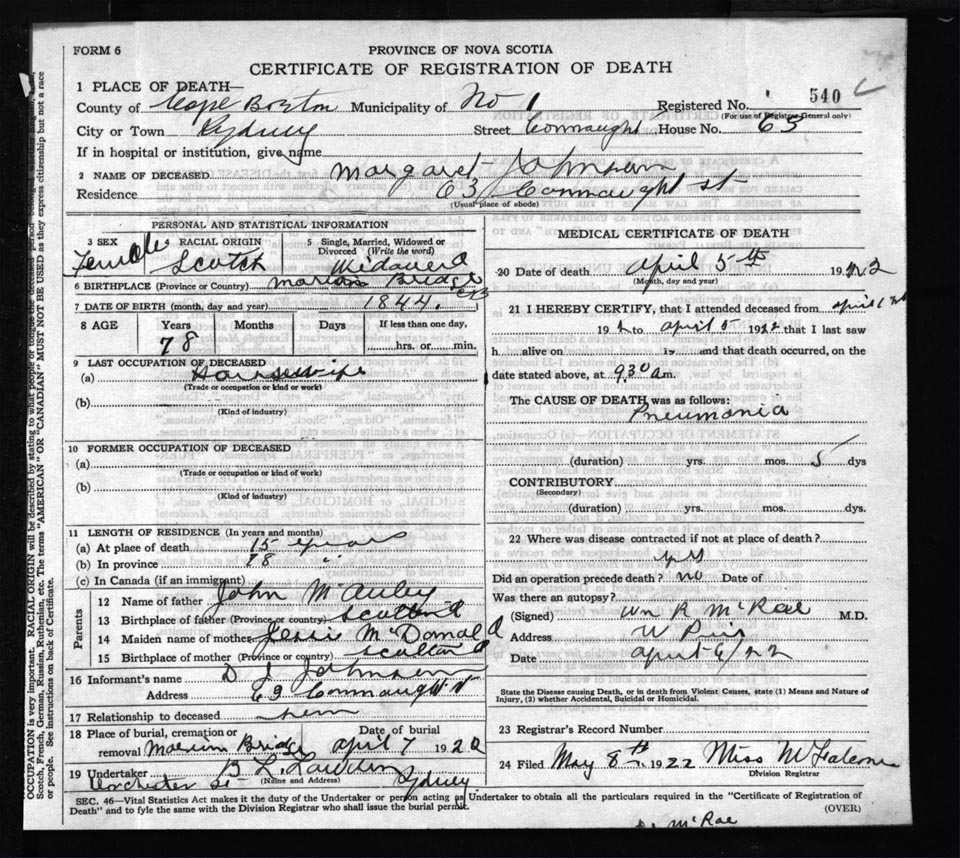 FORM 6
PROVINCE OF NOVA SCOTIA
CERTIFICATE OF REGISTRATION OF DEATH
1 PLACE OF DEATH—
County of Cape Breton Municipality of No 1 Registered No. 540
(For use of Registrar General only)
City or Town Sydney Street Connaught House No. 63
If in hospital or institution, give name
2 NAME OF DECEASED Margaret Johnson
Residence 63 Connaught St
(Usual place of abode)
PERSONAL AND STATISTICAL INFORMATION
3 SEX RACIAL ORIGIN 5 Single, Married, Widowed or Divorced (Write the word)
Female Scotch Widowed
6 BIRTHPLACE (Province or Country) Marion Bridge CB
7 DATE OF BIRTH (month, day and year) 1844.
8 AGE Years Months Days If less than one day,
78 hrs. or min.
9 LAST OCCUPATION OF DECEASED
(a) Housewife
(Trade or occupation or kind of work)
(b)
(Kind of industry)
10 FORMER OCCUPATION OF DECEASED
(a)
(Trade or occupation or kind of work)
(b)
(Kind of industry)
11 LENGTH OF RESIDENCE (In years and months)
(a) At place of death 15 years
(b) In province 78 "
(c) In Canada (if an immigrant)
Parents
12 Name of father John McAuley
13 Birthplace of father (Province or country) Scotland
14 Maiden name of mother Jessie McDonald
15 Birthplace of mother (Province or country) Scotland
16 Informant's name D J Johnson
Address 63 Connaught St
17 Relationship to deceased
18 Place of burial, cremation or removal Marion Bridge Date of burial April 7 1922
19 Undertaker Dorchester St Sydney
(Name and Address)
MEDICAL CERTIFICATE OF DEATH
20 Date of death April 5th 1922
(Month, day and year)
21 I HEREBY CERTIFY, that I attended deceased from April 1
192 to April 5 1922 that I last saw
h alive on 19 and that death occurred, on the
date stated above, at 9.30 a m.
The CAUSE OF DEATH was as follows:
Pneumonia
(duration) yrs. mos. 5 dys
CONTRIBUTORY
(Secondary)
(duration) yrs. mos. dys.
22 Where was disease contracted if not at place of death?
Did an operation precede death? no Date of
Was there an autopsy?
(Signed) Wm R McRae M.D.
Address
Date April 6/22
State the Disease causing Death, or in death from Violent Causes, state (1) Means and Nature of
Injury, (2) whether Accidental, Suicidal or Homicidal.
23 Registrar's Record Number
24 Filed May 8th 1922 Miss
Division Registrar
SEC. 46—Vital Statistics Act makes it the duty of the Undertaker or person acting as Undertaker to obtain all the particulars required in the "Certificate of Registration of
Death" and to fyle the same with the Division Registrar who shall issue the burial permit. (OVER)
McRae
OCCUPATION is very important. RACIAL ORIGIN will be described by stating to what
Scotch, French, German, Russian, Ruthenian, etc. The terms "AMERICAN" OR "CANADIAN" MUST NOT BE USED as they express citizenship but not a race
or people. See instructions on back of Certificate.